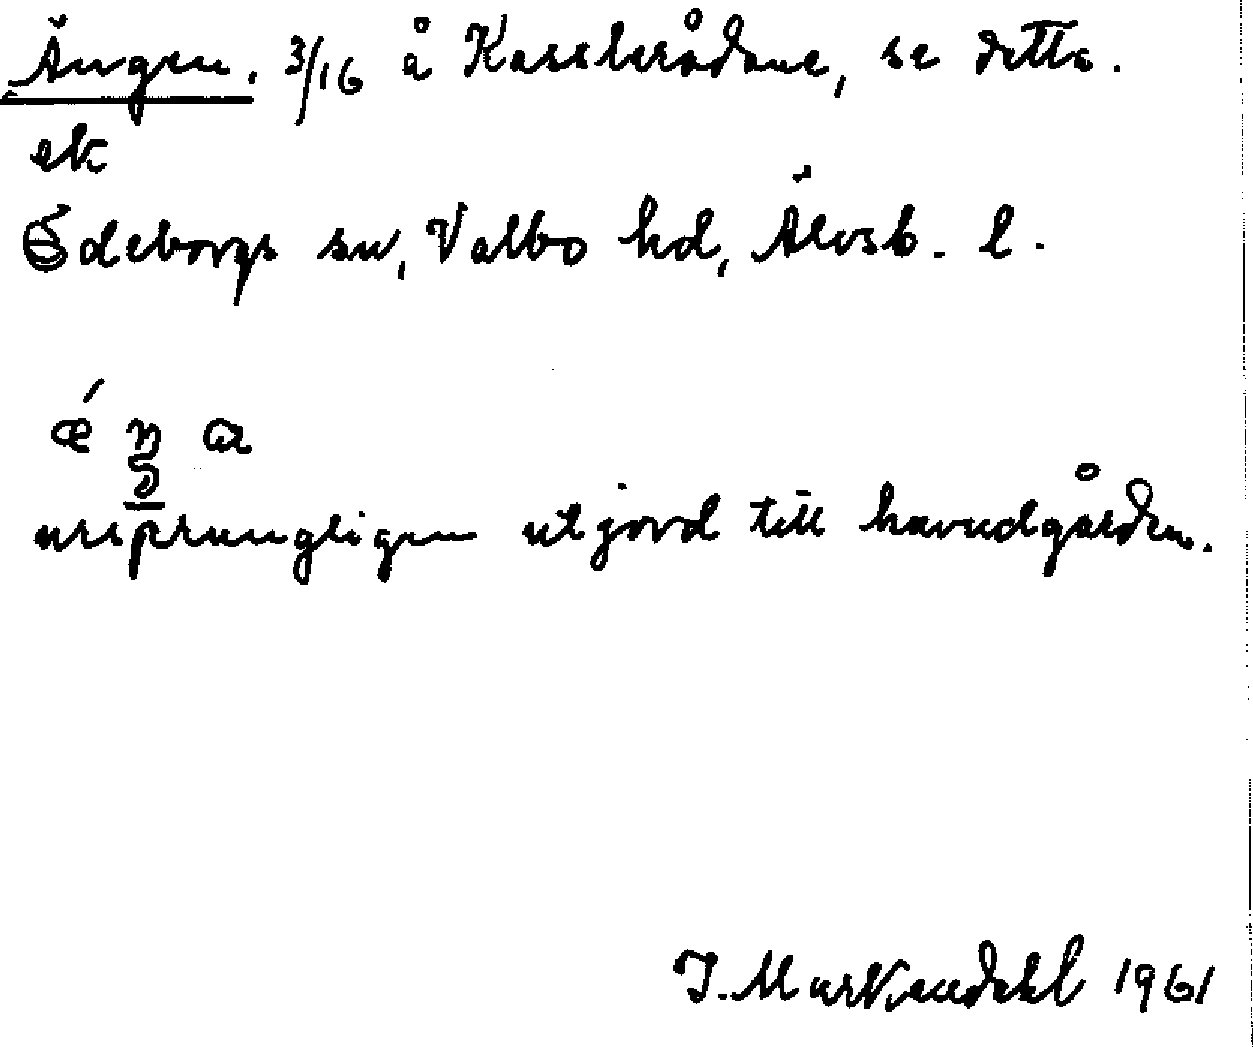 Ängen. 3/16 å Kasebråtane, se detta.
ek
Ödeborgs sn, Valbo hd, Älvsb. l.
ǽ ŋ a
ursprungligen utjord till huvudgården.
J. Murkendahl 1961